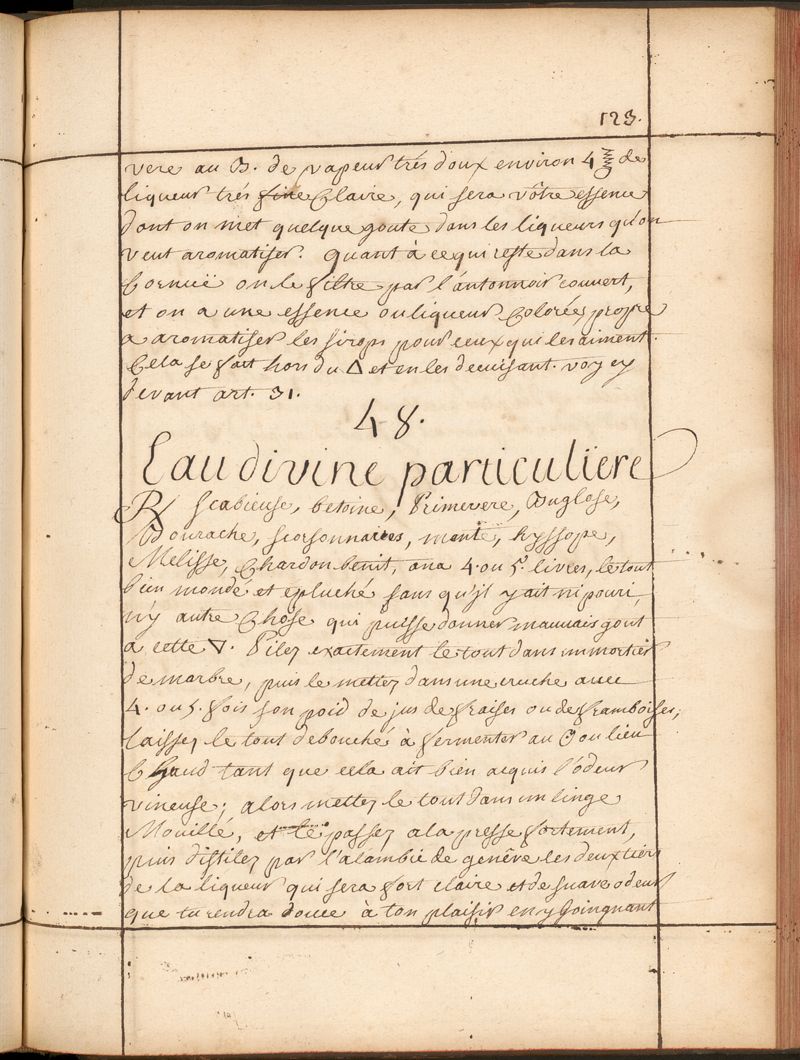 123.
vere au B. de vapeur trés doux environ 4 de
liqueur trés fine Claire, qui sera vôtre essence
dont on met quelque goute dans les liqueurs qu'on
veut aromatiser. quant à ce qui reste dans la
Cornuë on le filtre par l'antonnoir couvert,
et on a une essence ou liqueur Colorée, propre
a aromatiser les sirops pour ceux qui les aiment.
Cela se fait hors du △ et en les decuisant. voyez
devant art. 31.
48.
Eau divine particuliere
℞ Scabieuse, betoine, Primevere, Buglose,
Bourache, scorsonnaires, mente, hyssope,
Melisse, Chardon benit, ana 4. ou 5. livres, le tout
bien mondé et epluché sans qu'jl y ait ni pouri,
n'y autre Chose qui puisse donner mauvais gout
a cette ▽. Pilez exactement le tout dans un mortier
de marbre, puis le mettez dans une cruche avec
4. ou 5. fois son poid de jus de fraises ou de framboises;
laissez le tout debouché à fermenter au ☉ ou lieu
Chaud tant que cela ait bien acquis l'odeur
vineuse; alors mettez le tout dans un linge
Mouillé, et le passez a la presse fortement,
puis distilez par l'alambic de genêve les deux tiers
de la liqueur qui sera fort claire et de suave odeur
que tu rendra douce à ton plaisir en y Joingnant